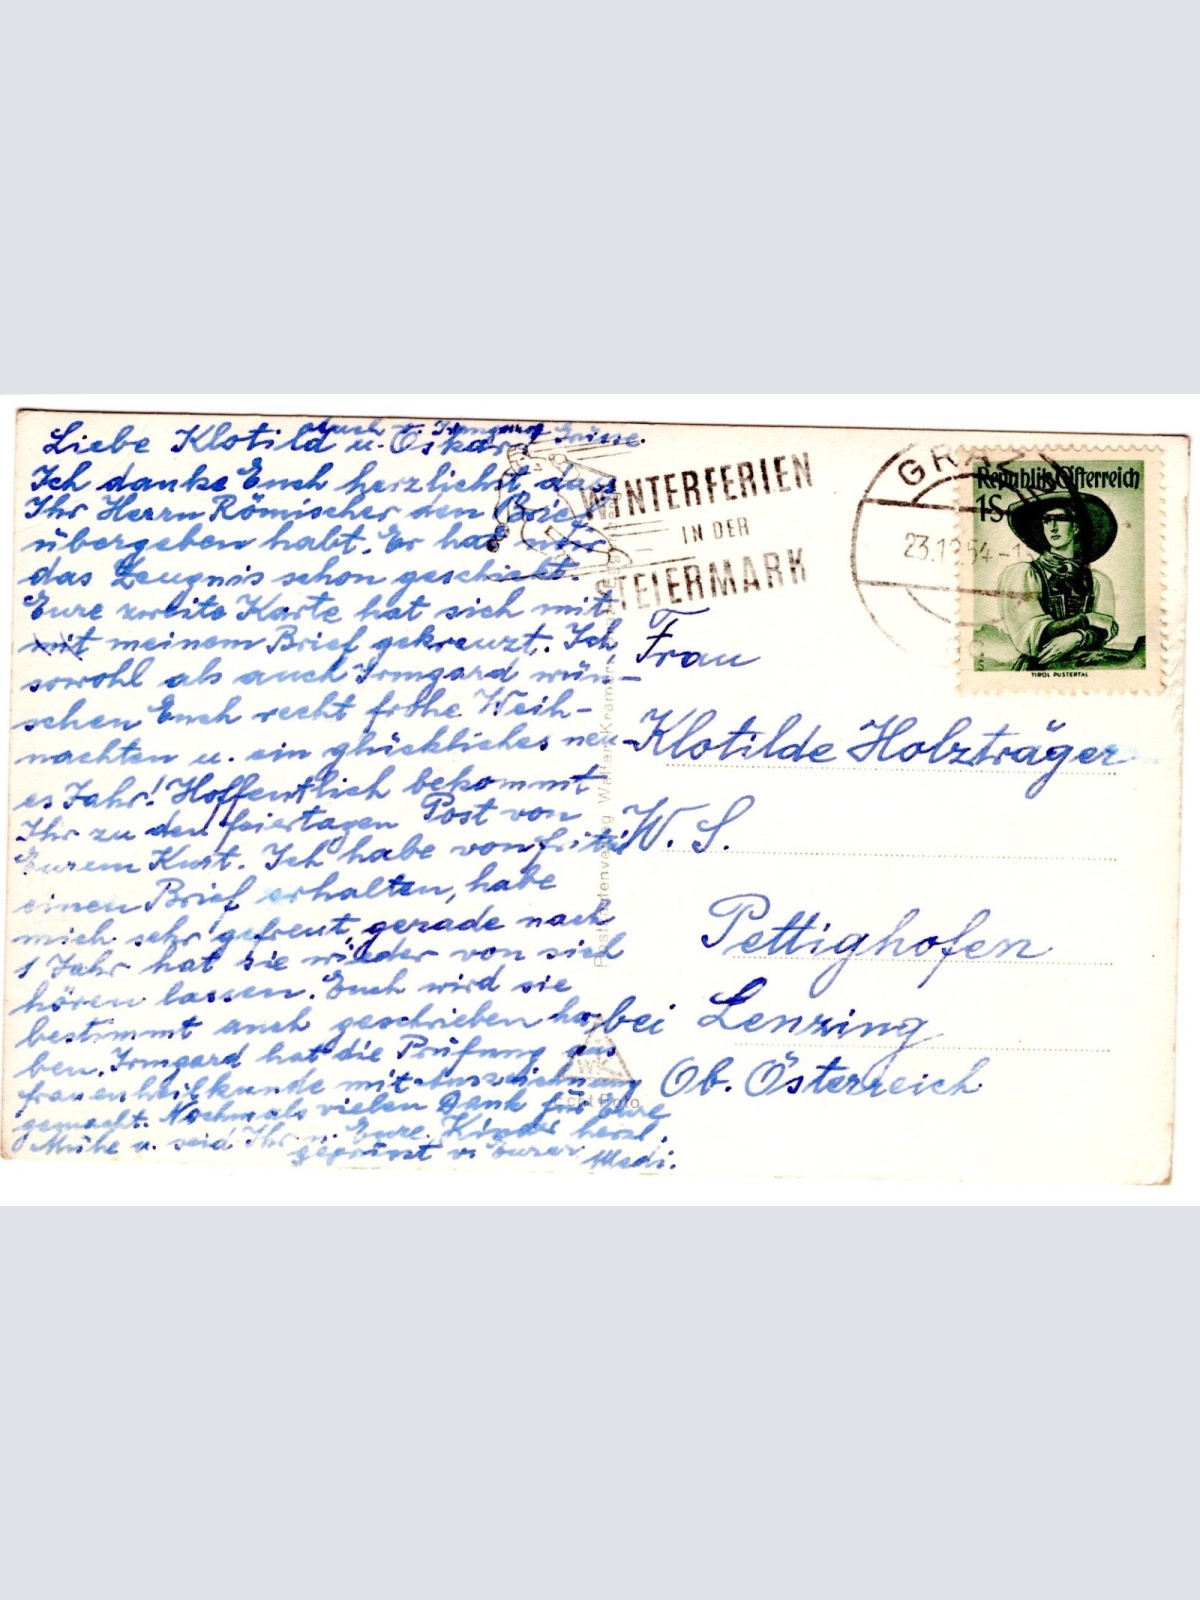 Auch v. Irmgard Grüsse.
Liebe Klotild u. Oskar!
Ich danke Euch herzlichst, dass
Ihr Herrn Römischer den Brief
übergeben habt. Er hat mir
das Zeugnis schon geschickt.
Eure zweite Karte hat sich mit
mit meinem Brief gekreuzt. Ich
sowohl als auch Irmgard wün-
schen Euch recht frohe Weih-
nachten u. ein glückliches neu-
es Jahr! Hoffentlich bekommt
Ihr zu den Feiertagen Post von
Eurem Kurt. Ich habe von Fritzi
einen Brief erhalten, habe
mich sehr gefreut, gerade nach
1 Jahr hat sie wieder von sich
hören lassen. Euch wird sie
bestimmt auch geschrieben ha-
ben. Irmgard hat die Prüfung aus
Frauenheilkunde mit Auszeichnung
gemacht. Nochmals vielen Dank für Eure
Mühe u. seid Ihr u. Eure Kinder herzl.
gegrüsst v. Eurer Medi.
WINTERFERIEN
IN DER
STEIERMARK
GRAZ
23.12.54
Republik Österreich
1S
TIROL PUSTERTAL
Frau
Klotilde Holzträger
W. S.
Pettighofen
bei Lenzing
Ob. Österreich
Echt Foto